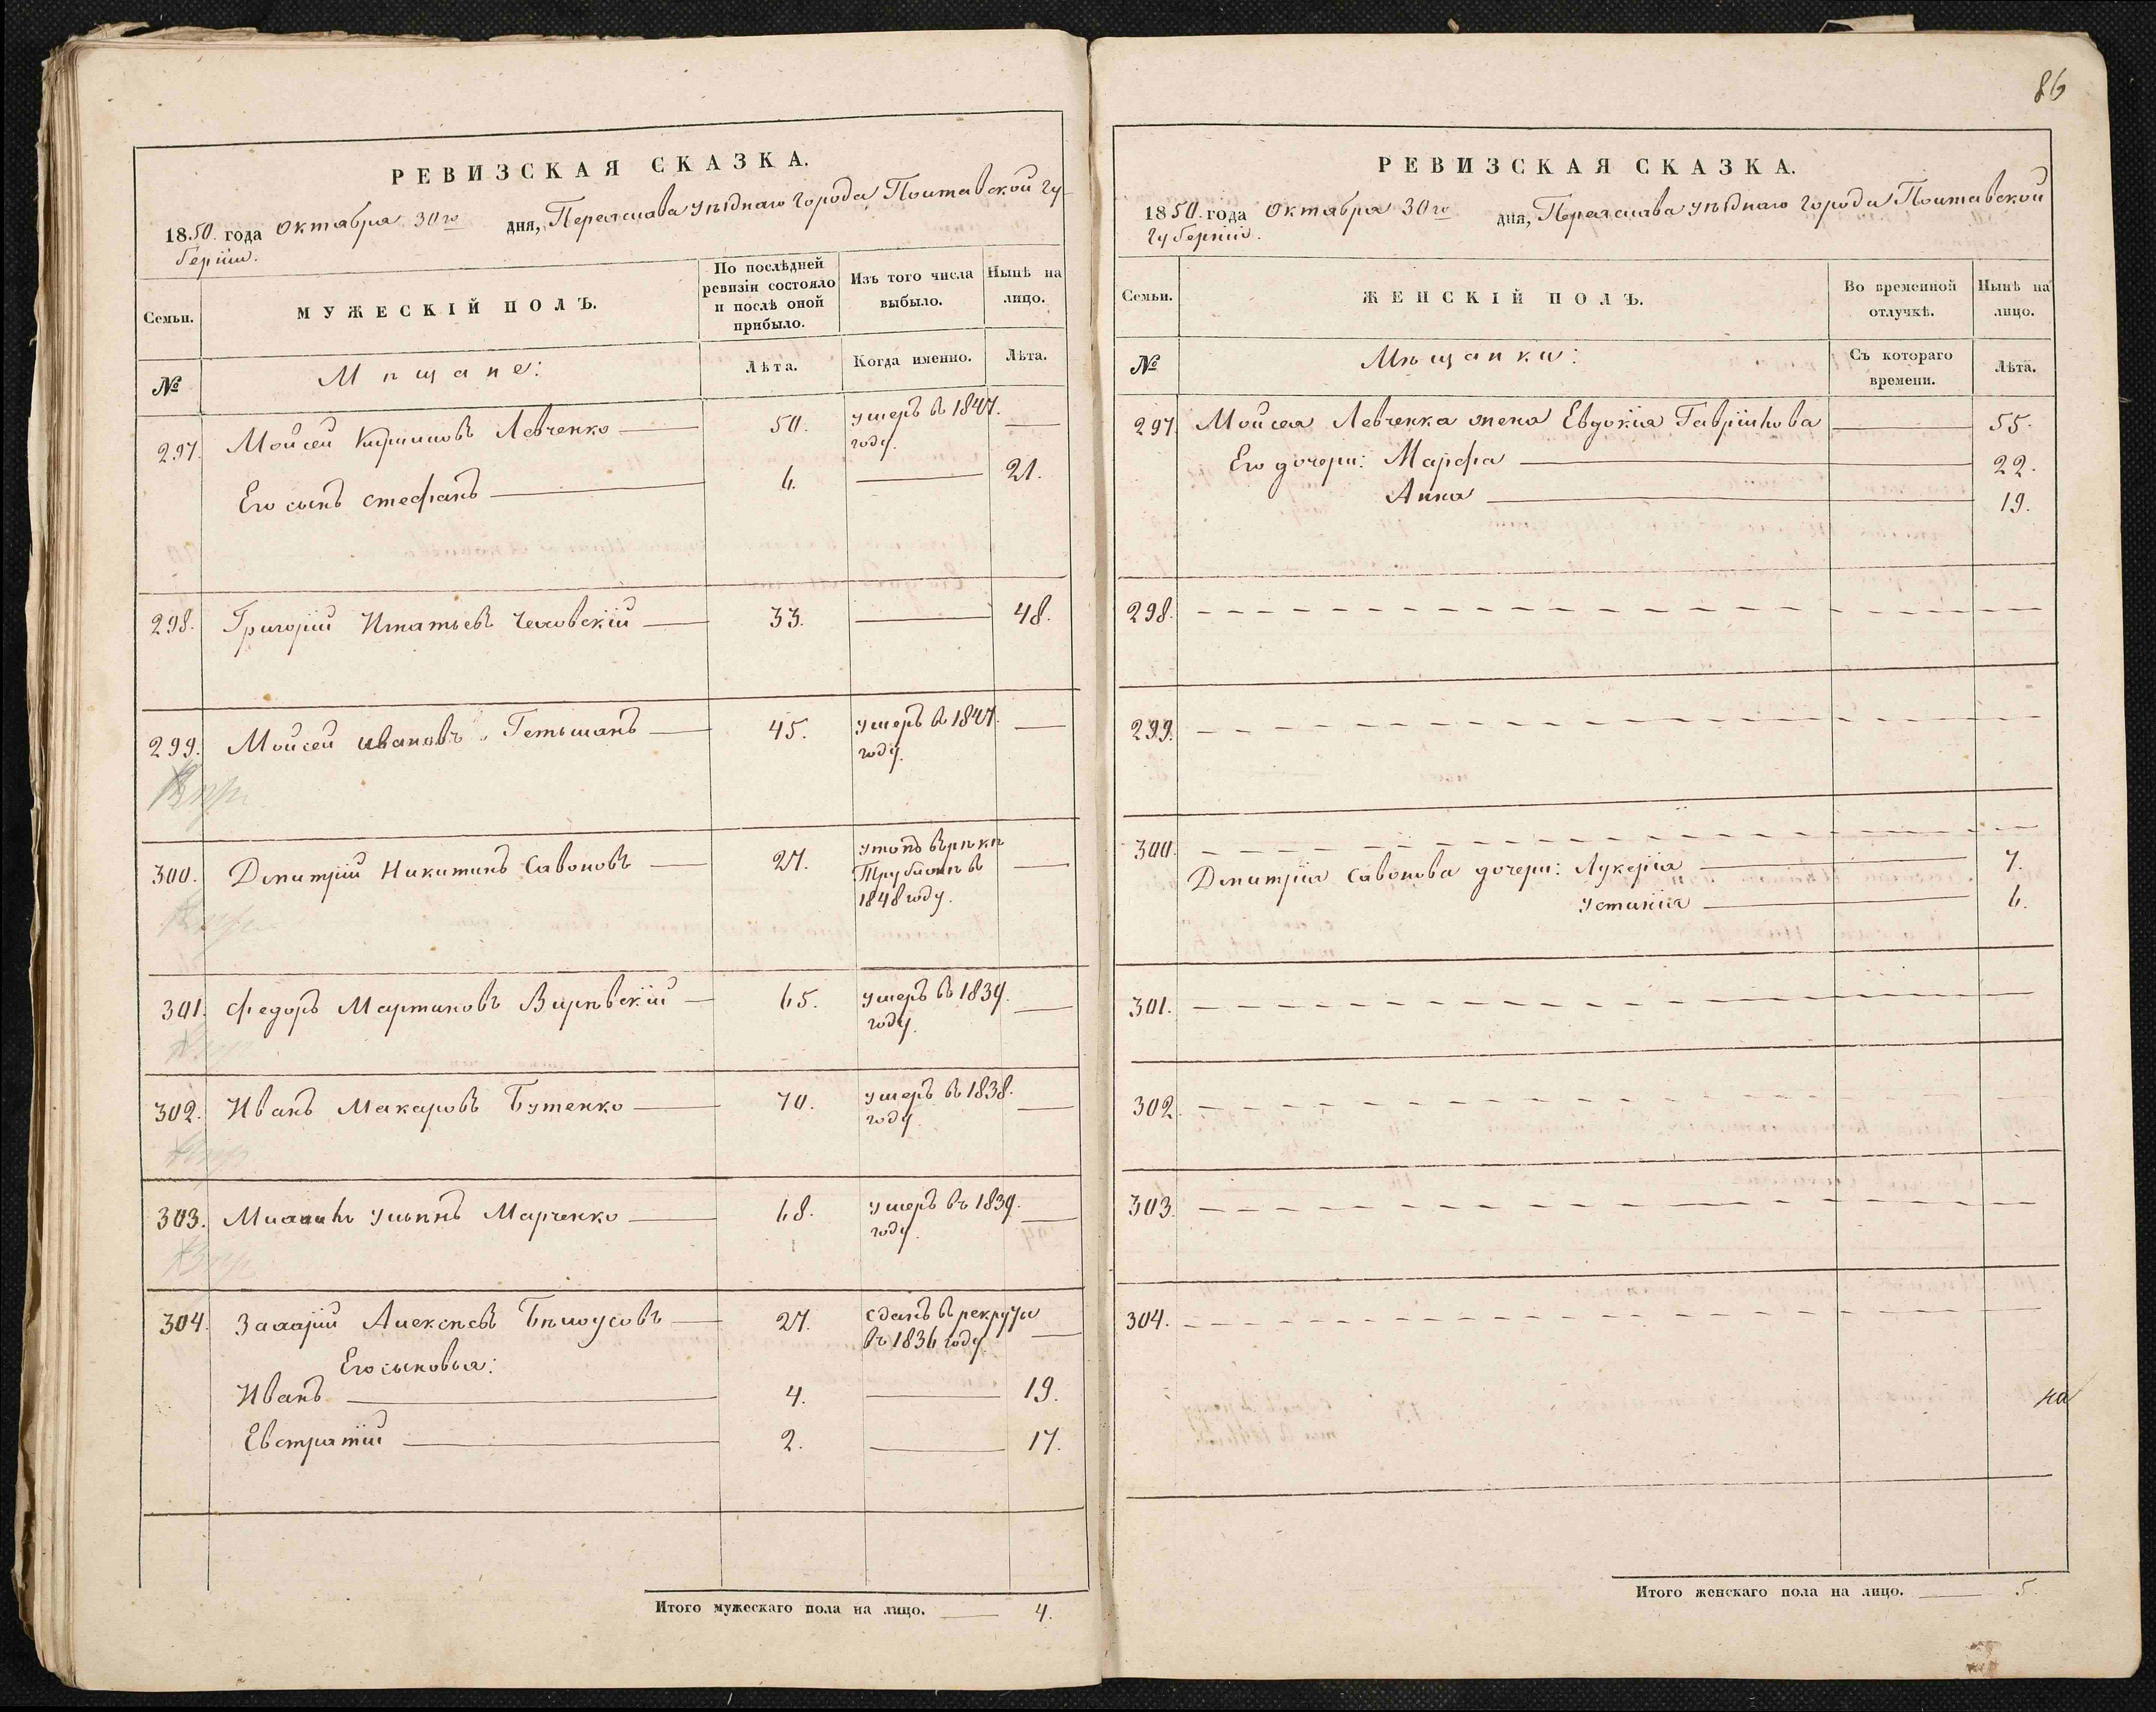 86
РЕВИЗСКАЯ СКАЗКА.
1850. года Октября 30го дня, Переяслава уѣзднаго города Полтавской гу-
берніи.
Семьи.
МУЖЕСКІЙ ПОЛЪ.
По послѣдней ревизіи состояло и послѣ оной прибыло.
Изъ того числа выбыло.
Нынѣ на лицо.
№
Мѣщане:
Лѣта.
Когда именно.
Лѣта.
297. Мойсей Кириловъ Левченко 50. умеръ в 1847.
году.
Его сынъ Стефанъ 6. 21.
298. Григорій Игнатьевъ Чеховскій 33. 48.
299. Мойсей Ивановъ Гетьманъ 45. умеръ в 1847.
году.
300. Дмитрій Никитинъ Савоновъ 27. утопъ въ рѣкѣ
Трубайлѣ въ
1848 году.
301. Федоръ Мартиновъ Вирѣвскій 65. умеръ въ 1839.
году.
302. Иванъ Макаровъ Бутенко 70. умеръ въ 1838.
году.
303. Михаилъ Марченко 68. умеръ въ 1839.
году.
304. Захарій Алексѣевъ Бѣлоусовъ 27. сданъ в рекруты
въ 1836 году.
Его сыновья:
Иванъ 4. 19.
Евстратій 2. 17.
Итого мужескаго пола на лицо. 4.
РЕВИЗСКАЯ СКАЗКА.
1850. года Октября 30го дня, Переяслава уѣзднаго города Полтавской
губерніи.
Семьи.
ЖЕНСКІЙ ПОЛЪ.
Во временной отлучкѣ.
Нынѣ на лицо.
№
Мѣщанки:
Съ котораго времени.
Лѣта.
297. Мойсея Левченка жена Евдокія Гаврілова 55.
Его дочери: Марфа 22.
Анна 19.
298.
299.
300.
Дмитрія Савонова дочери: Лукерія 7.
Устинія 6.
301.
302.
303.
304.
на
Итого женскаго пола на лицо. 5.